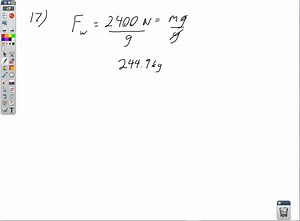 17) F_w = 2400 N / g = mg / g
244.9 kg